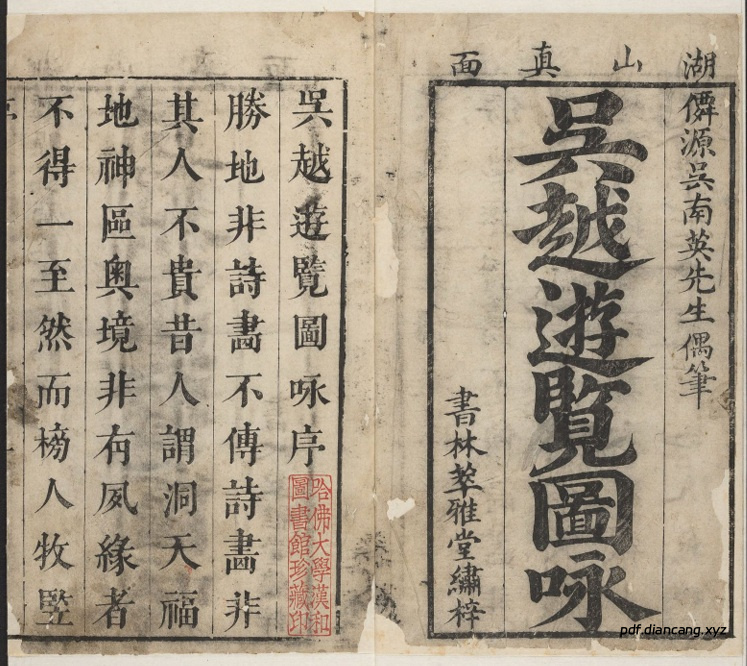 湖山真面
僊源吳南英先生偶筆
吳越遊覽圖咏
書林萃雅堂繡梓
吳越遊覽圖咏序
哈佛大學漢和
圖書館珍藏印
勝地非詩畵不傳詩畵非
其人不貴昔人謂洞天福
地神區奧境非有夙緣者
不得一至然而榜人牧豎
pdf.diancang.xyz